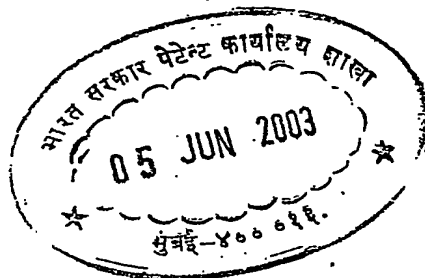 भारत सरकार पेटेन्ट कार्यालय शाखा
05 JUN 2003
मुंबई-४०० ०१६.